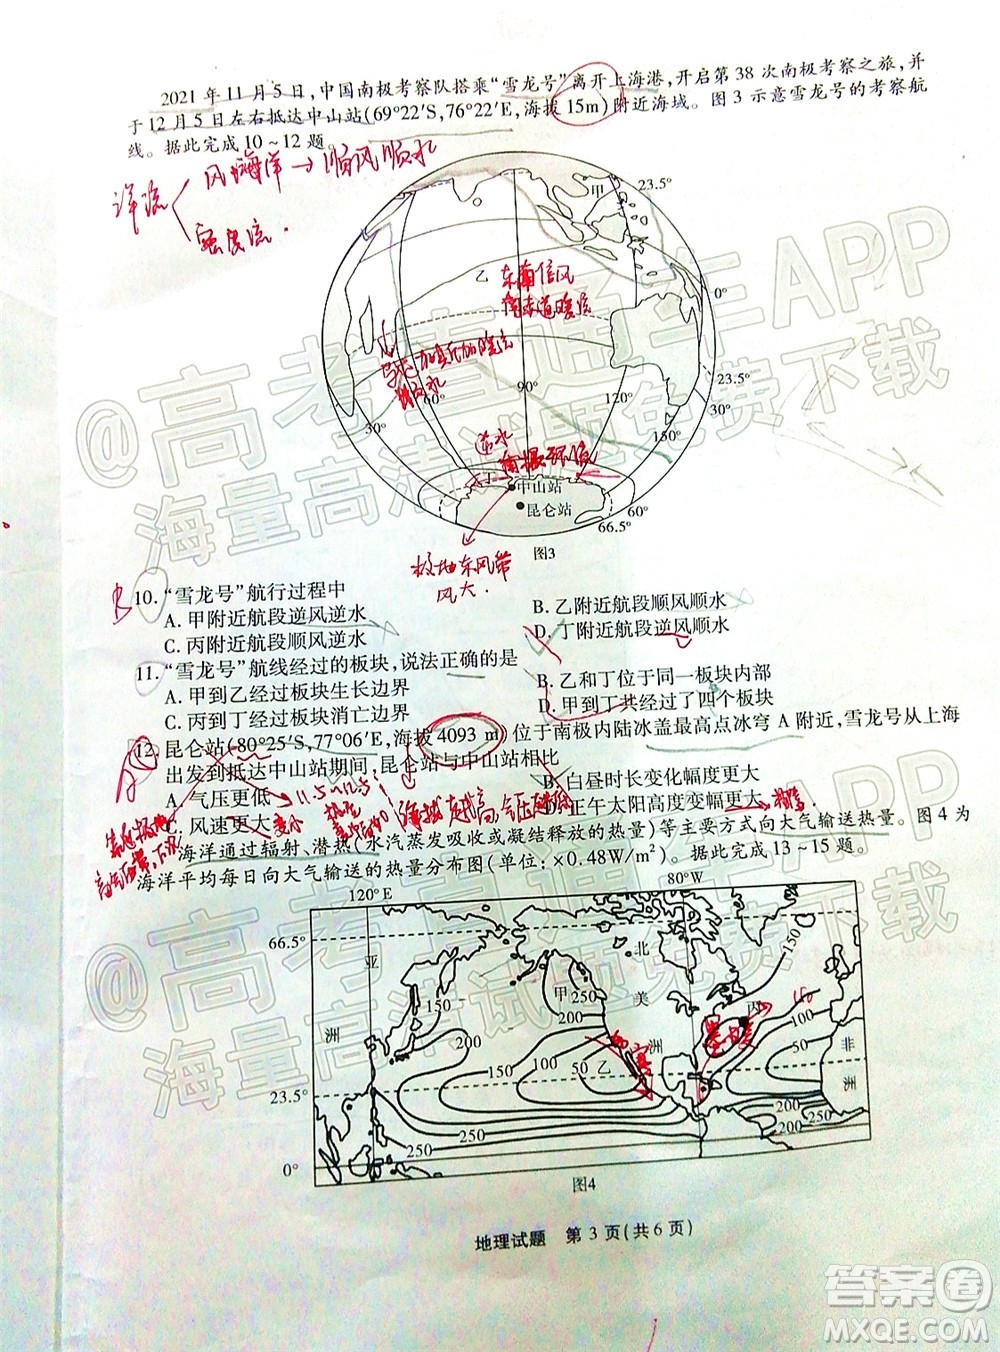 2021 年 11 月 5 日,中国南极考察队搭乘“雪龙号”离开上海港,开启第 38 次南极考察之旅,并
于 12 月 5 日左右抵达中山站(69°22′S,76°22′E,海拔 15m)附近海域。图 3 示意雪龙号的考察航
线。据此完成 10～12 题。
洋流
风海洋→顺风顺水
密度流.
甲
23.5°
乙
东南信风
0°
23.5°
30°
30°
60°
90°
120°
150°
逆水
丁
中山站
昆仑站
60°
66.5°
图3
极地东风带
风大.
B
10. “雪龙号”航行过程中
A. 甲附近航段逆风逆水
B. 乙附近航段顺风顺水
C. 丙附近航段顺风逆水
D. 丁附近航段逆风顺水
11. “雪龙号”航线经过的板块,说法正确的是
A. 甲到乙经过板块生长边界
B. 乙和丁位于同一板块内部
C. 丙到丁经过板块消亡边界
D. 甲到丁共经过了四个板块
A
12. 昆仑站(80°25′S,77°06′E,海拔 4093 m)位于南极内陆冰盖最高点冰穹 A 附近,雪龙号从上海
出发到抵达中山站期间,昆仑站与中山站相比
A. 气压更低
B. 白昼时长变化幅度更大
C. 风速更大
D. 正午太阳高度变幅更大
变小
11.5～12.5
海拔越高,气压越低
海洋通过辐射、潜热(水汽蒸发吸收或凝结释放的热量)等主要方式向大气输送热量。图 4 为
海洋平均每日向大气输送的热量分布图(单位:×0.48W/m²)。据此完成 13～15 题。
120°E
80°W
66.5°
23.5°
0°
亚
美
北
美
洲
非
甲
乙
丙
150
100
200
250
200
250
150
100
50
150
150
50
100
200
250
200
250
250
图4
地理试题 第 3 页(共 6 页)
@高考直通车APP
海量高清试题免费下载
@高考直通车APP
海量高清试题免费下载
答案圈
MXQE.COM